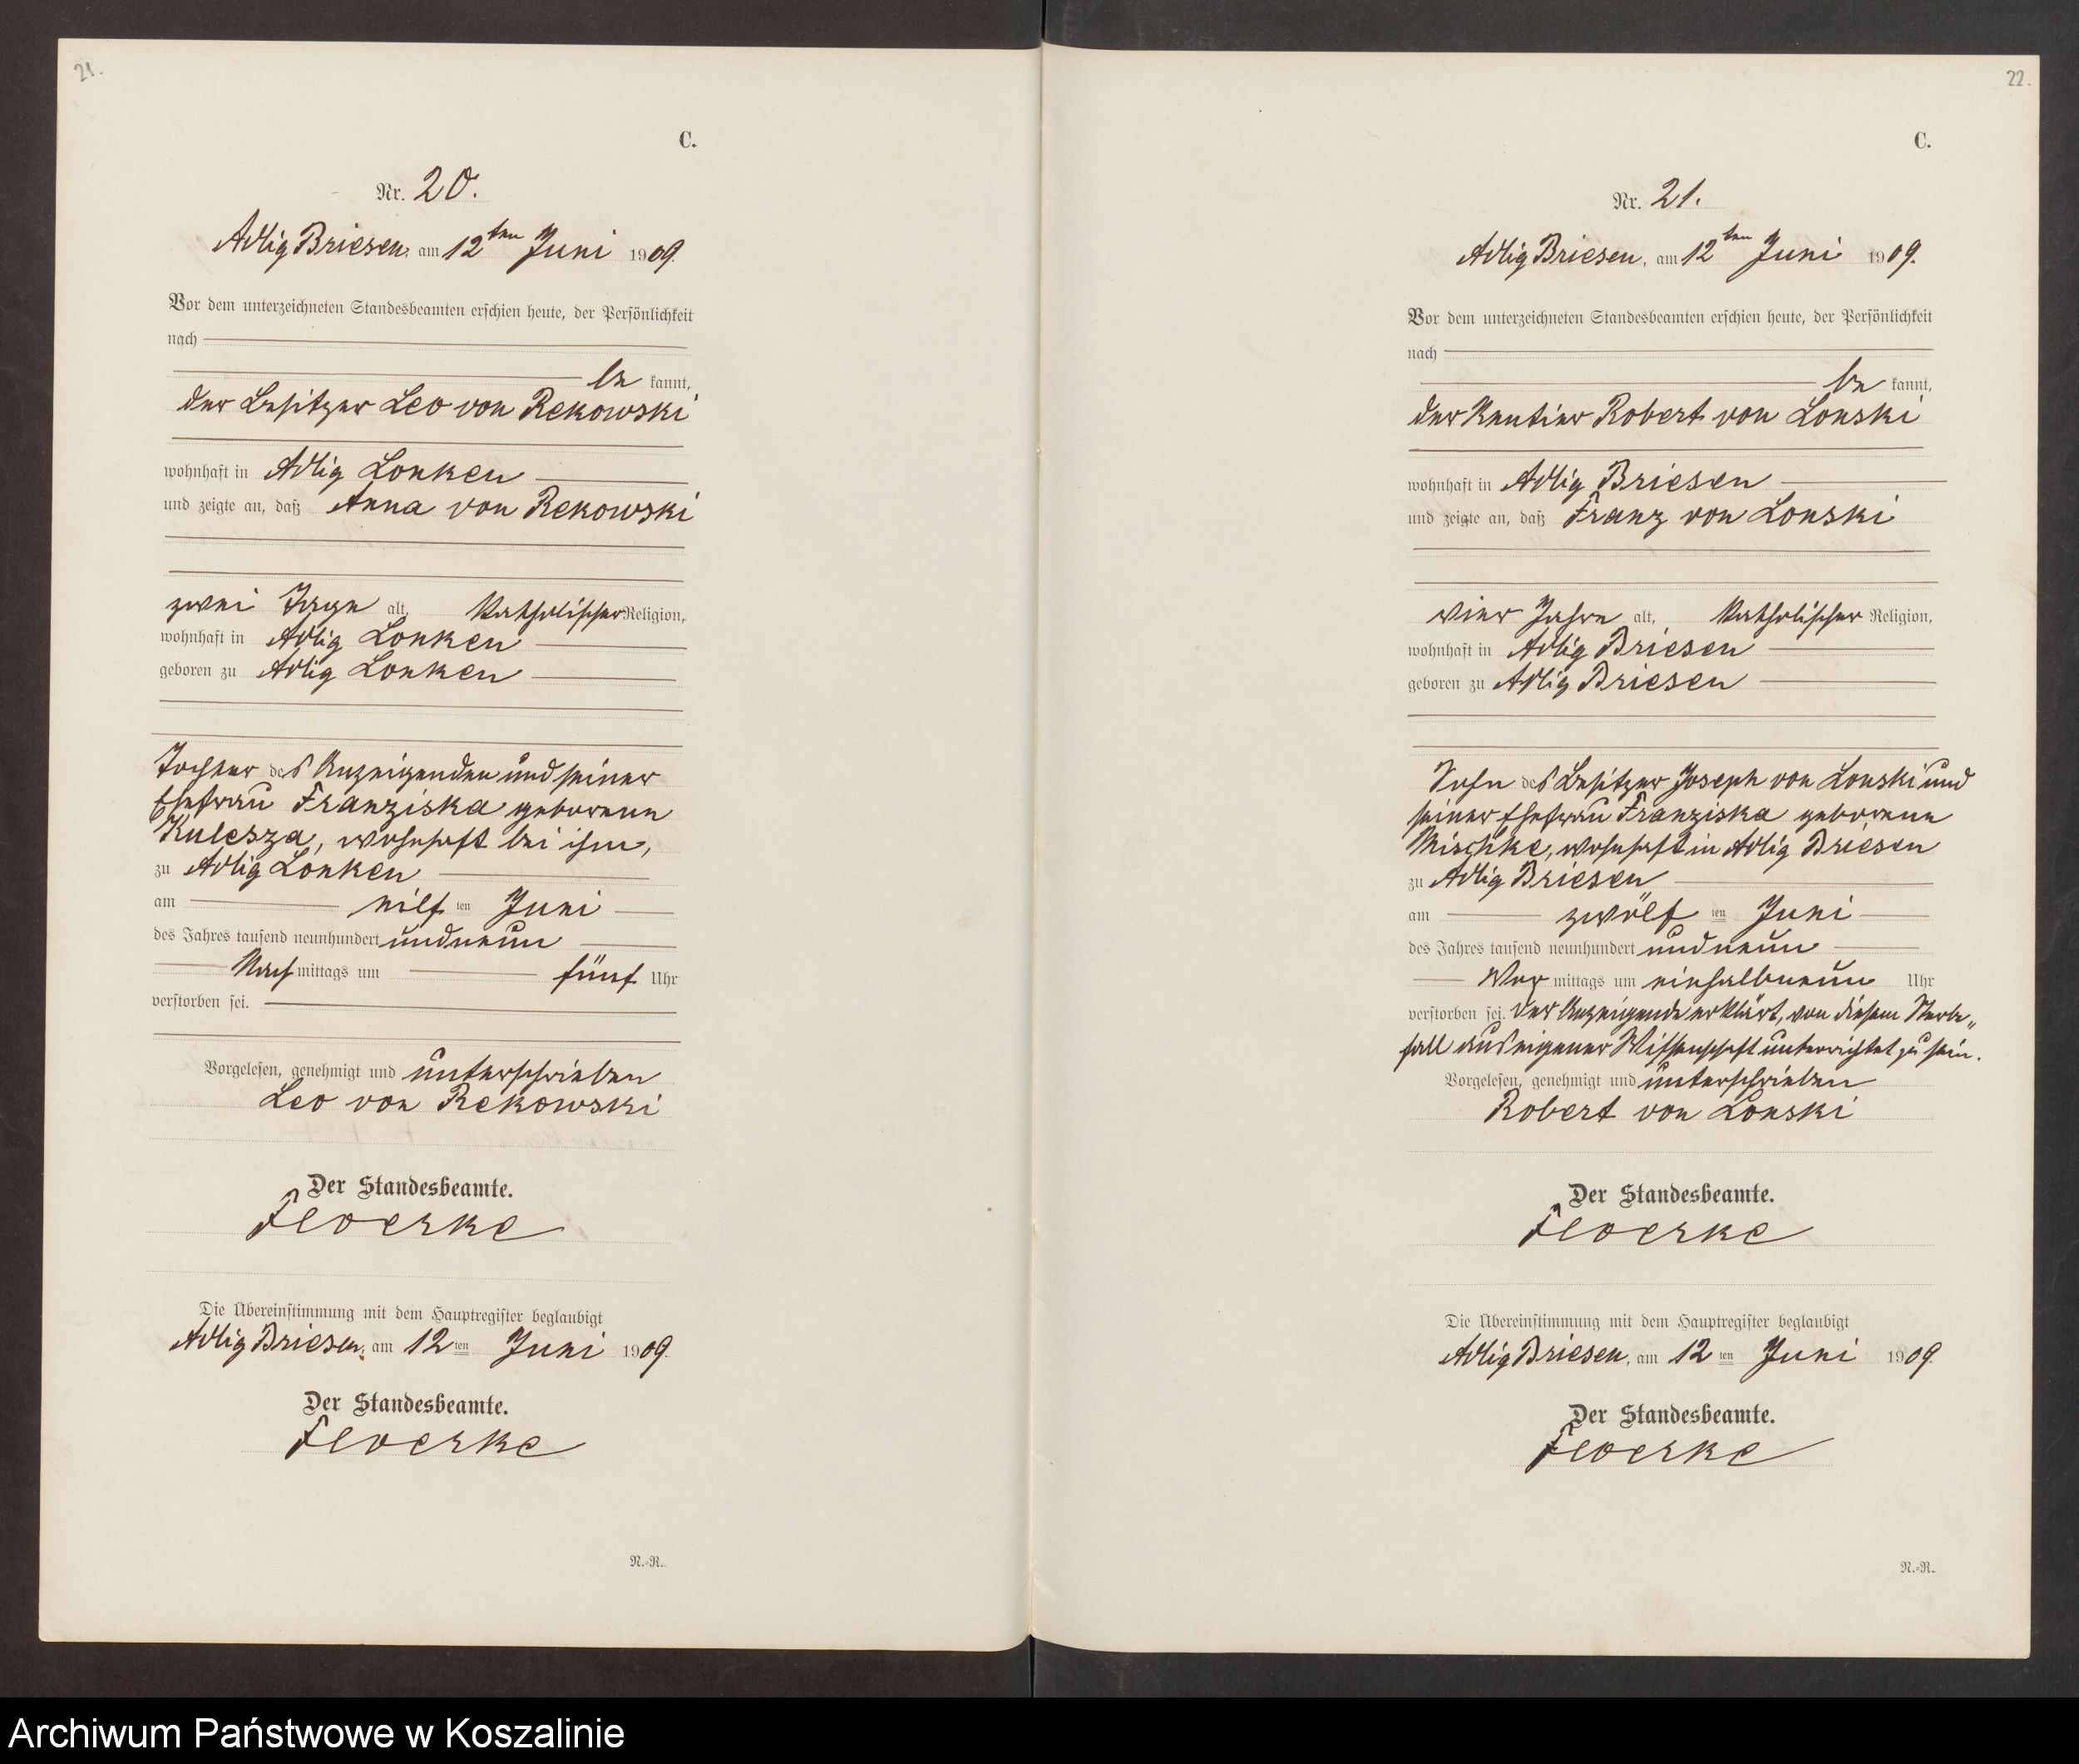 21.
C.
Nr. 20.
Adlig Briesen, am 12ten Juni 1909.
Vor dem unterzeichneten Standesbeamten erschien heute, der Persönlichkeit
nach
be kannt,
der Besitzer Leo von Rekowski
wohnhaft in Adlig Lonken
und zeigte an, daß Anna von Rekowski
zwei Tage alt, katholischer Religion,
wohnhaft in Adlig Lonken
geboren zu Adlig Lonken
Tochter des Anzeigenden und seiner
Ehefrau Franziska geborene
Kulesza, wohnhaft bei ihm,
zu Adlig Lonken
am elf ten Juni
des Jahres tausend neunhundert undneun
Nach mittags um fünf Uhr
verstorben sei.
Vorgelesen, genehmigt und unterschrieben
Leo von Rekowski
Der Standesbeamte.
Der Standesbeamte.
Die Übereinstimmung mit dem Hauptregister beglaubigt
Adlig Briesen, am 12 ten Juni 1909.
Der Standesbeamte.
N.=R.
22.
C.
Nr. 21.
Adlig Briesen, am 12ten Juni 1909.
Vor dem unterzeichneten Standesbeamten erschien heute, der Persönlichkeit
nach
be kannt,
der Rentier Robert von Lonski
wohnhaft in Adlig Briesen
und zeigte an, daß Franz von Lonski
vier Jahre alt, katholischer Religion,
wohnhaft in Adlig Briesen
geboren zu Adlig Briesen
Sohn des Besitzer Joseph von Lonski und
seiner Ehefrau Franziska geborene
Mischke, wohnhaft in Adlig Briesen
zu Adlig Briesen
am zwölf ten Juni
des Jahres tausend neunhundert undneun
Vor mittags um einhalbneun Uhr
verstorben sei. Der Anzeigende erklärt, von diesem Sterbe„
fall aus eigener Wissenschaft unterrichtet zu sein.
Vorgelesen, genehmigt und unterschrieben
Robert von Lonski
Der Standesbeamte.
Die Übereinstimmung mit dem Hauptregister beglaubigt
Adlig Briesen, am 12 ten Juni 1909.
Der Standesbeamte.
N.=R.
Archiwum Państwowe w Koszalinie